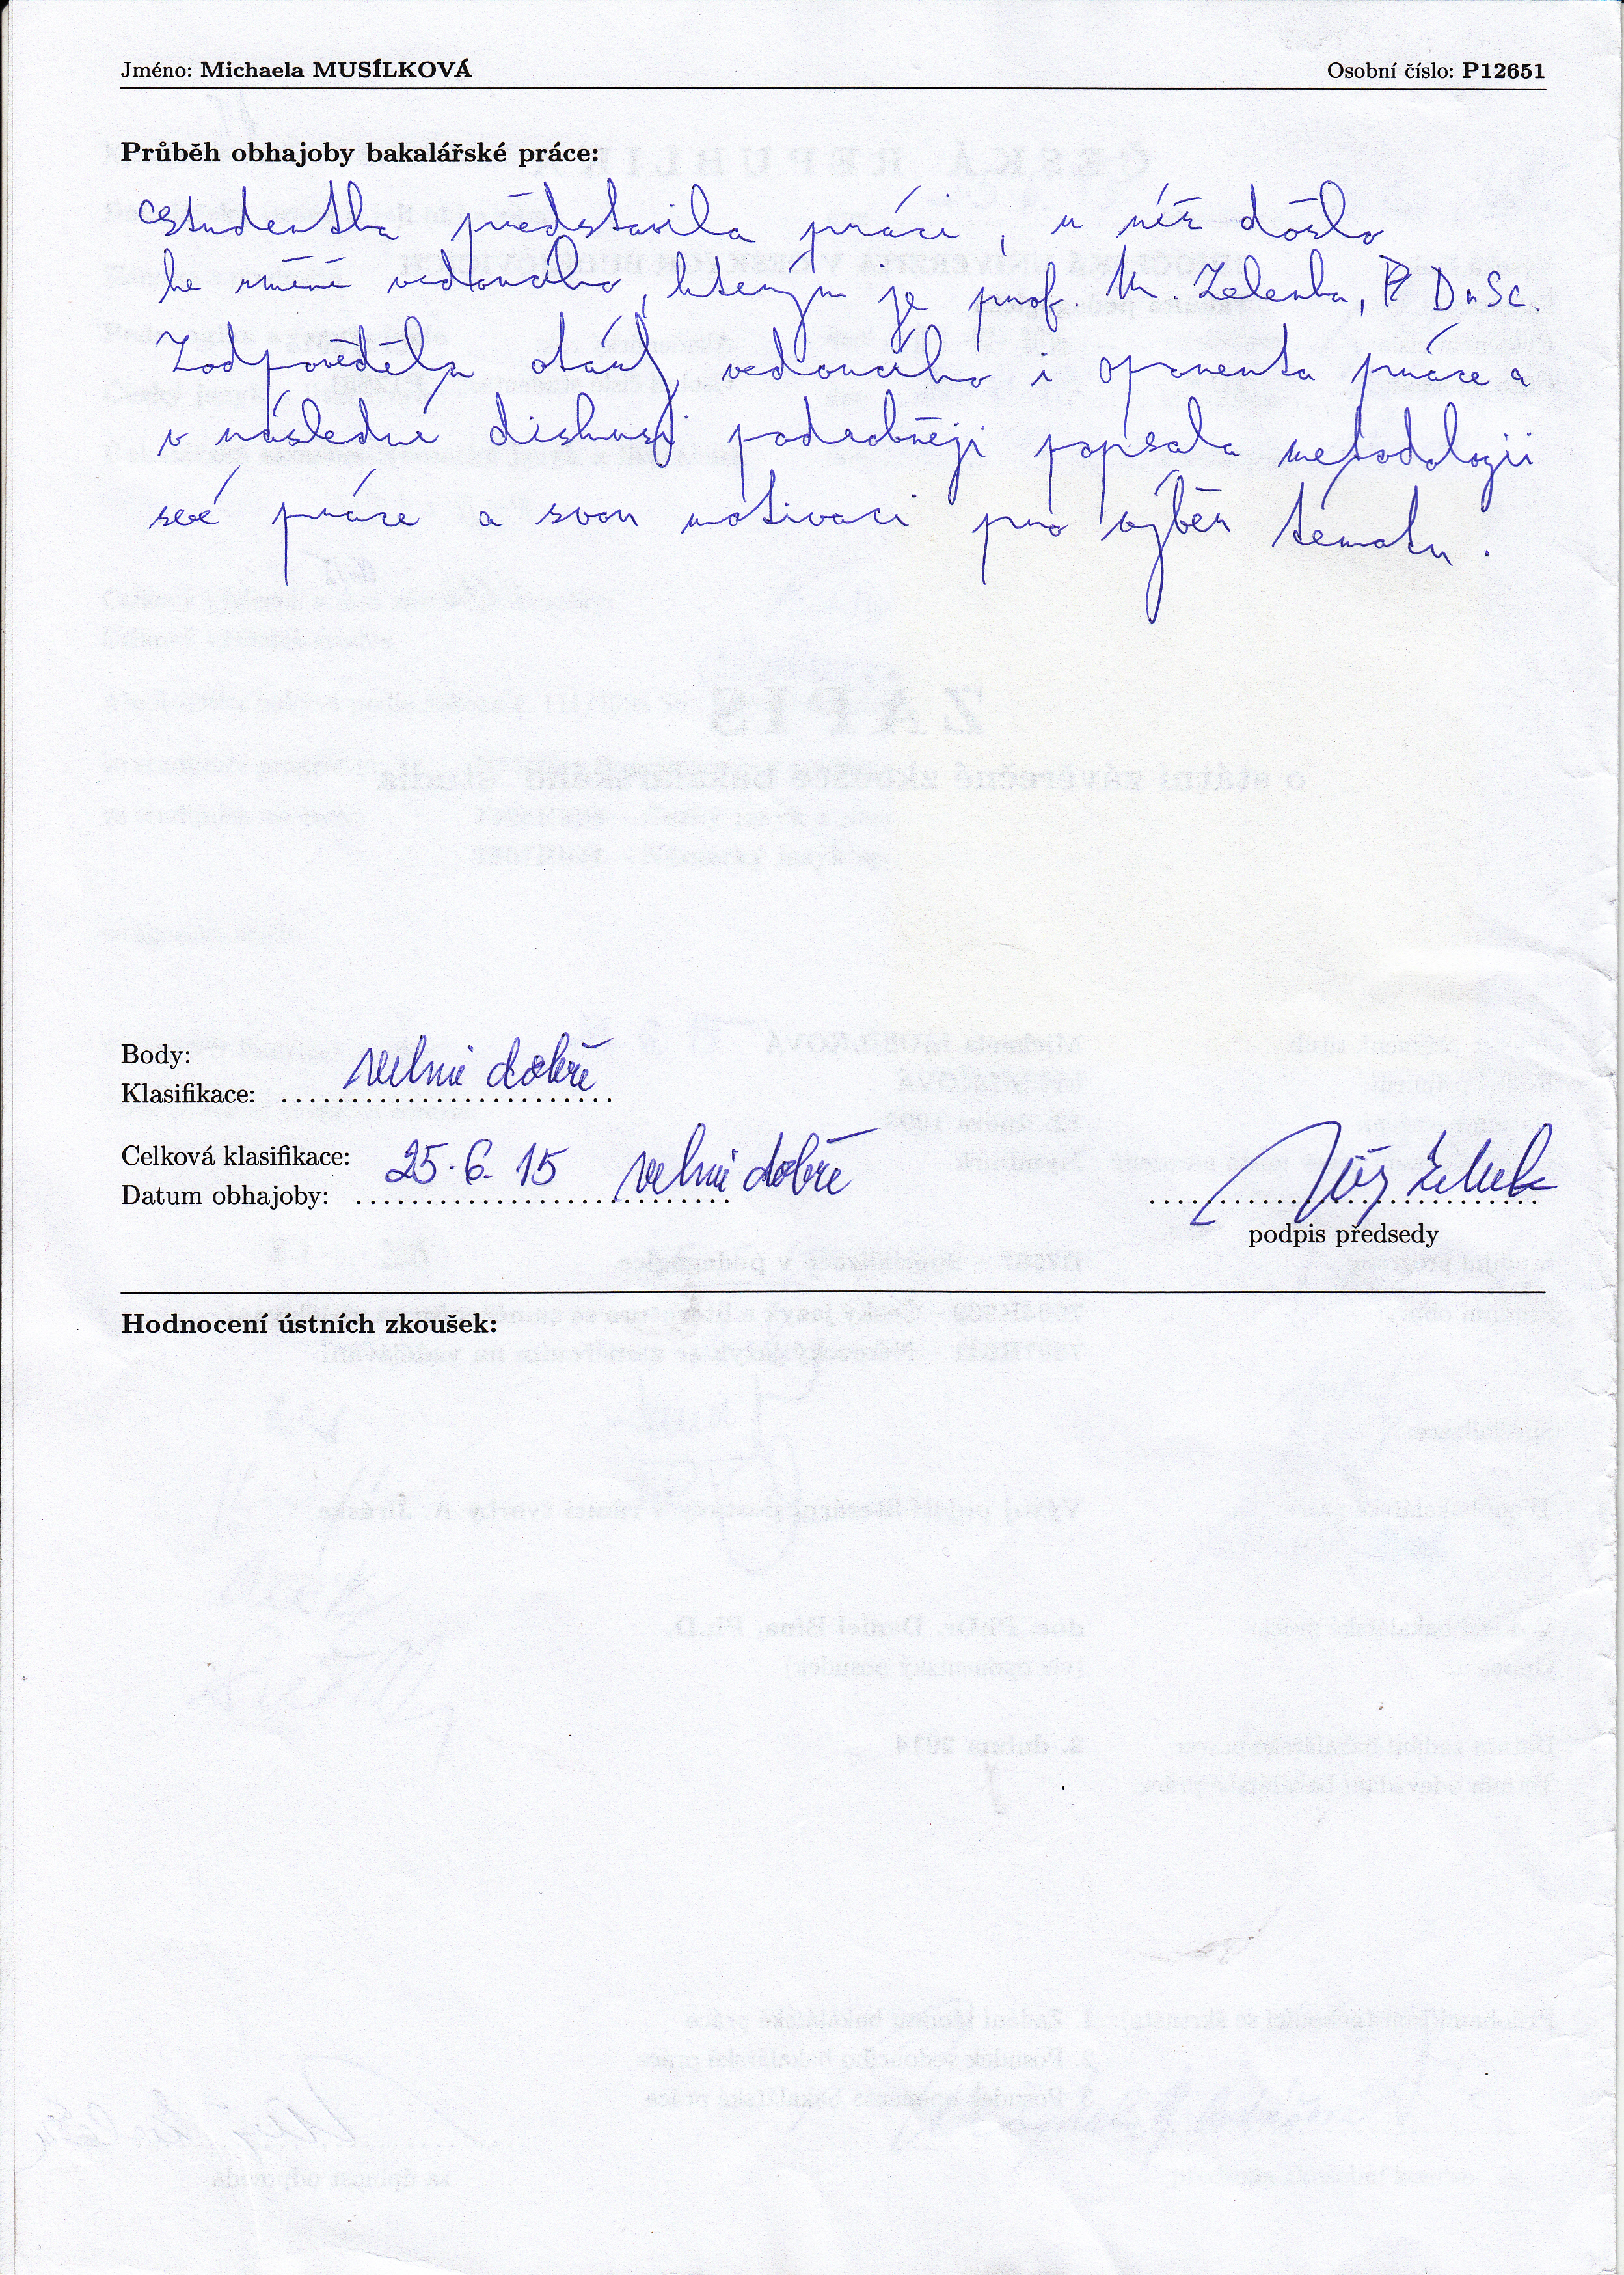 Jméno: Michaela MUSÍLKOVÁ Osobní číslo: P12651
Průběh obhajoby bakalářské práce:
Studentka představila práci, u níž došlo
ke změně vedoucího, kterým je prof. M. Zelenka, DrSc.
Zodpověděla otázky vedoucího i oponenta práce a
v následné diskusi podrobněji popsala metodologii
své práce a svou motivaci pro výběr tématu.
Body:
Klasifikace: velmi dobře
Celková klasifikace: velmi dobře
Datum obhajoby: 25. 6. 15
podpis předsedy
Hodnocení ústních zkoušek: